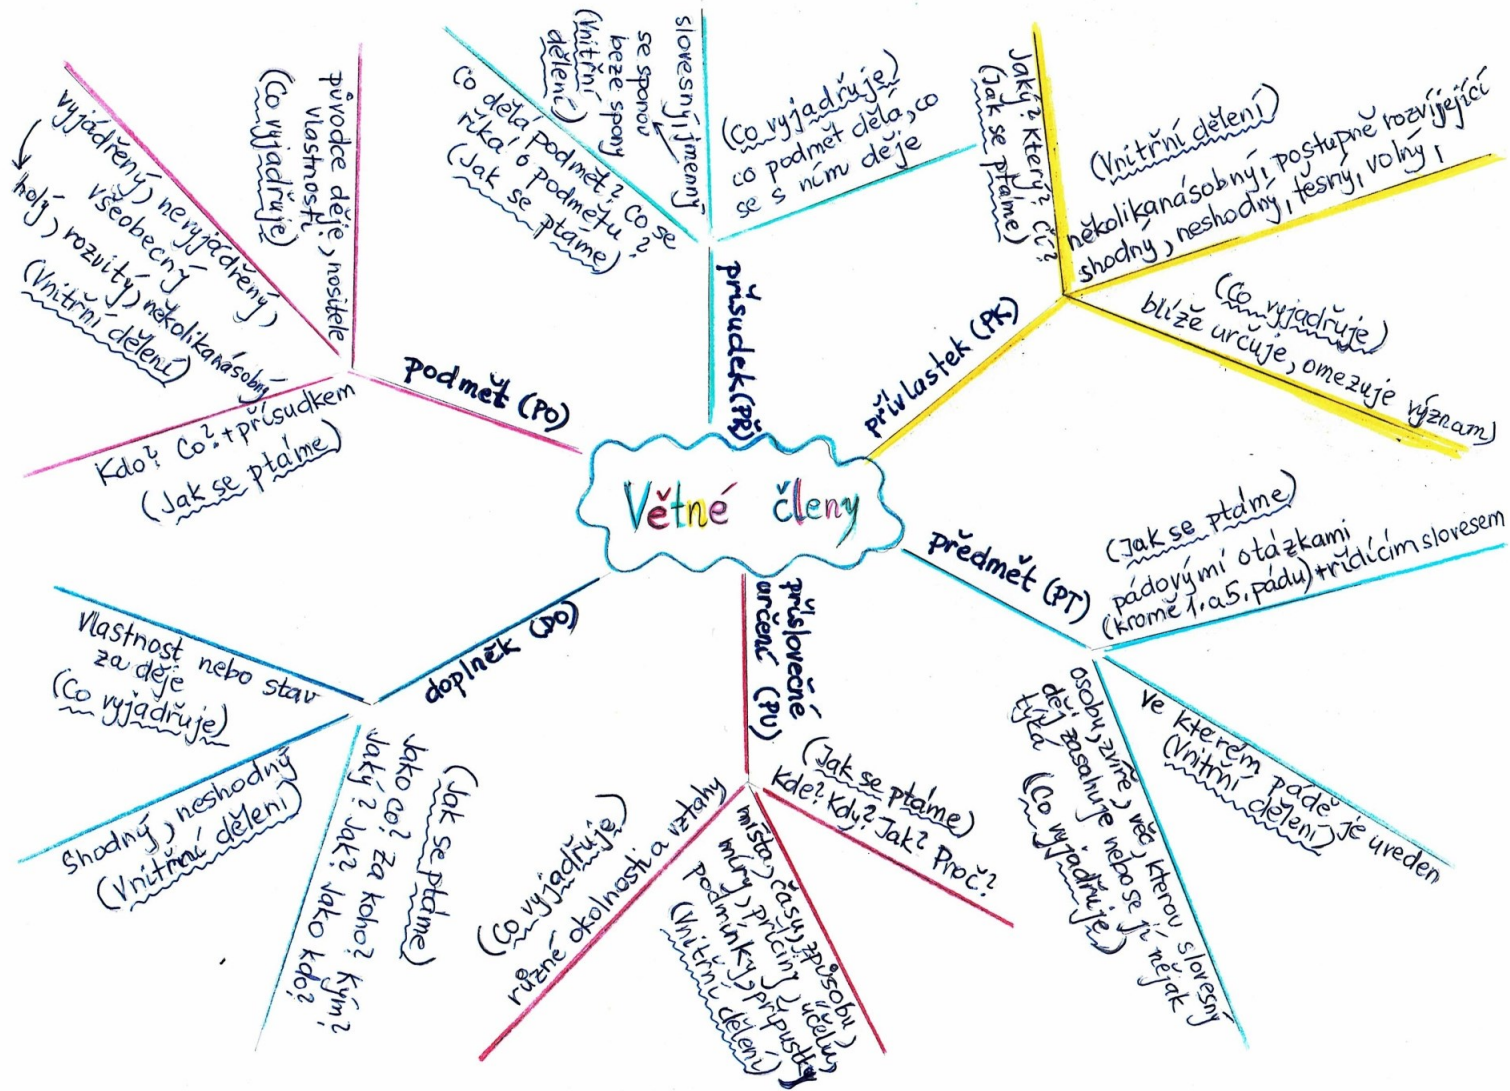 Větné členy
podmět (PO)
původce děje, nositel
vlastnosti
(Co vyjadřuje)
vyjádřený, nevyjádřený,
všeobecný
holý, rozvitý, několikanásobný
(Vnitřní dělení)
Kdo? Co? + přísudkem
(Jak se ptáme)
přísudek (PŘ)
Co dělá podmět? Co se
říká o podmětu?
(Jak se ptáme)
slovesný, jmenný
se sponou
beze spony
(Vnitřní
dělení)
(Co vyjadřuje)
co podmět dělá, co
se s ním děje
přívlastek (PK)
Jaký? Který? Čí?
(Jak se ptáme)
(Vnitřní dělení)
několikanásobný, postupně rozvíjející
shodný, neshodný, těsný, volný,
(Co vyjadřuje)
blíže určuje, omezuje význam
předmět (PT)
(Jak se ptáme)
pádovými otázkami
(kromě 1. a 5. pádu) + řídícím slovesem
ve kterém pádě je uveden
(Vnitřní dělení)
osobu, zvíře, věc, kterou slovesný
děj zasahuje nebo se jí nějak
týká
(Co vyjadřuje)
příslovečné
určení (PU)
(Jak se ptáme)
Kde? Kdy? Jak? Proč?
místa, času, způsobu,
míry, příčiny, účelu,
podmínky, přípustky
(Vnitřní dělení)
(Co vyjadřuje)
různé okolnosti a vztahy
doplněk (DO)
vlastnost nebo stav
za děje
(Co vyjadřuje)
Shodný, neshodný
(Vnitřní dělení)
(Jak se ptáme)
Jako co? Za koho? Kým?
Jaký? Jak? Jako kdo?